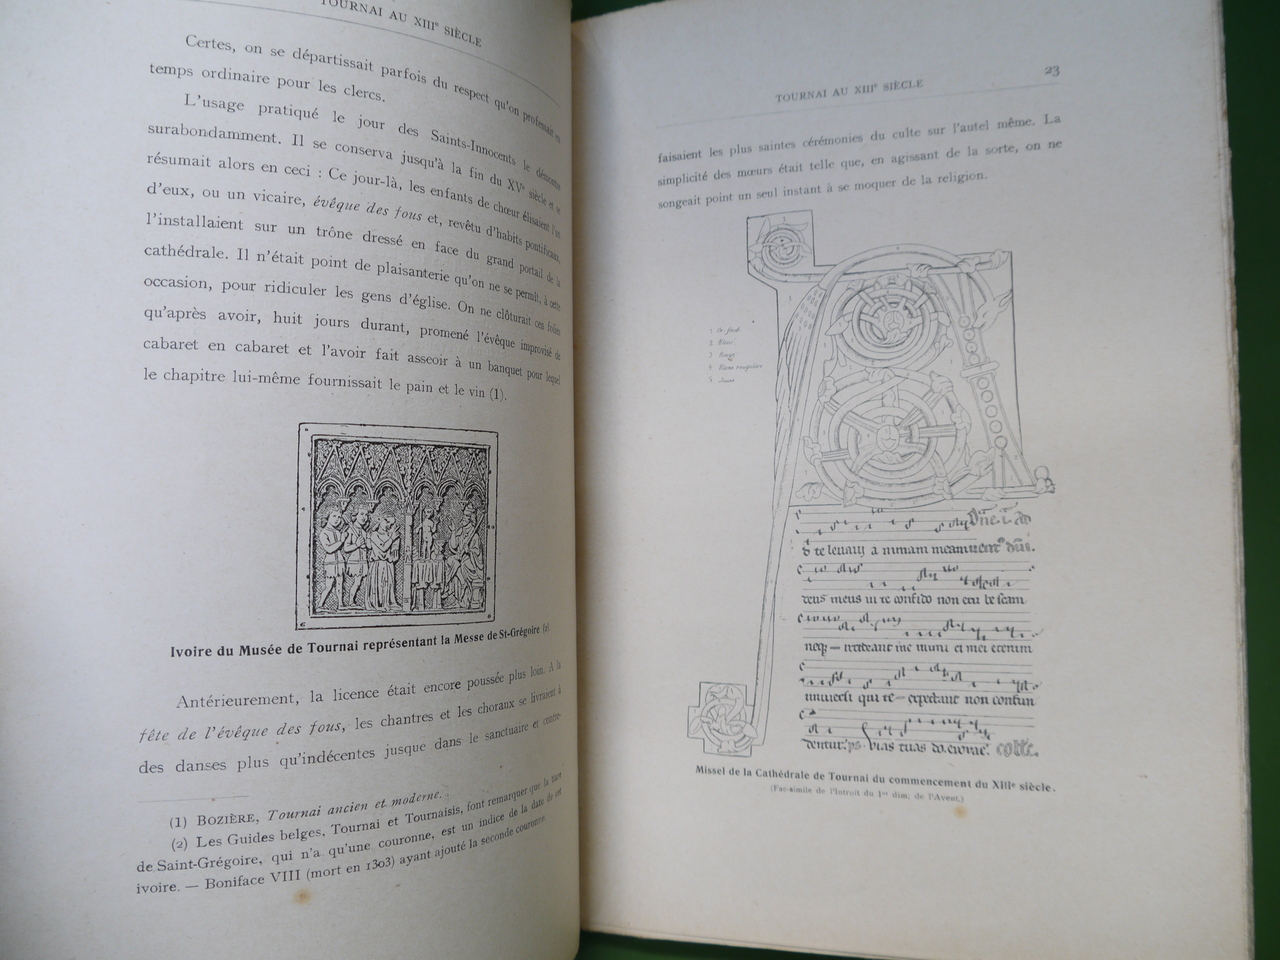 TOURNAI AU XIIIe SIÈCLE
Certes, on se départissait parfois du respect qu'on professait en
temps ordinaire pour les clercs.
L'usage pratiqué le jour des Saints-Innocents le démontre
surabondamment. Il se conserva jusqu'à la fin du XVe siècle et se
résumait alors en ceci : Ce jour-là, les enfants de chœur élisaient l'un
d'eux, ou un vicaire, évêque des fous et, revêtu d'habits pontificaux,
l'installaient sur un trône dressé en face du grand portail de la
cathédrale. Il n'était point de plaisanterie qu'on ne se permit, à cette
occasion, pour ridiculer les gens d'église. On ne clôturait ces folies
qu'après avoir, huit jours durant, promené l'évêque improvisé de
cabaret en cabaret et l'avoir fait asseoir à un banquet pour lequel
le chapitre lui-même fournissait le pain et le vin (1).
Ivoire du Musée de Tournai représentant la Messe de St-Grégoire (2).
Antérieurement, la licence était encore poussée plus loin. A la
fête de l'évêque des fous, les chantres et les choraux se livraient à
des danses plus qu'indécentes jusque dans le sanctuaire et contre-
(1) BOZIÈRE, Tournai ancien et moderne.
(2) Les Guides belges, Tournai et Tournaisis, font remarquer que la tiare
de Saint-Grégoire, qui n'a qu'une couronne, est un indice de la date de cet
ivoire. — Boniface VIII (mort en 1303) ayant ajouté la seconde couronne.
TOURNAI AU XIIIe SIÈCLE
23
faisaient les plus saintes cérémonies du culte sur l'autel même. La
simplicité des mœurs était telle que, en agissant de la sorte, on ne
songeait point un seul instant à se moquer de la religion.
1
2
3 Rouge
4
5
te levavi animam meam
deus meus in te confido non erubescam
neque irrideant me inimici mei etenim
universi qui te expectant non confun
dentur. ps. vias tuas domine
Missel de la Cathédrale de Tournai du commencement du XIIIe siècle.
(Fac-simile de l'Introït du 1er dim. de l'Avent.)